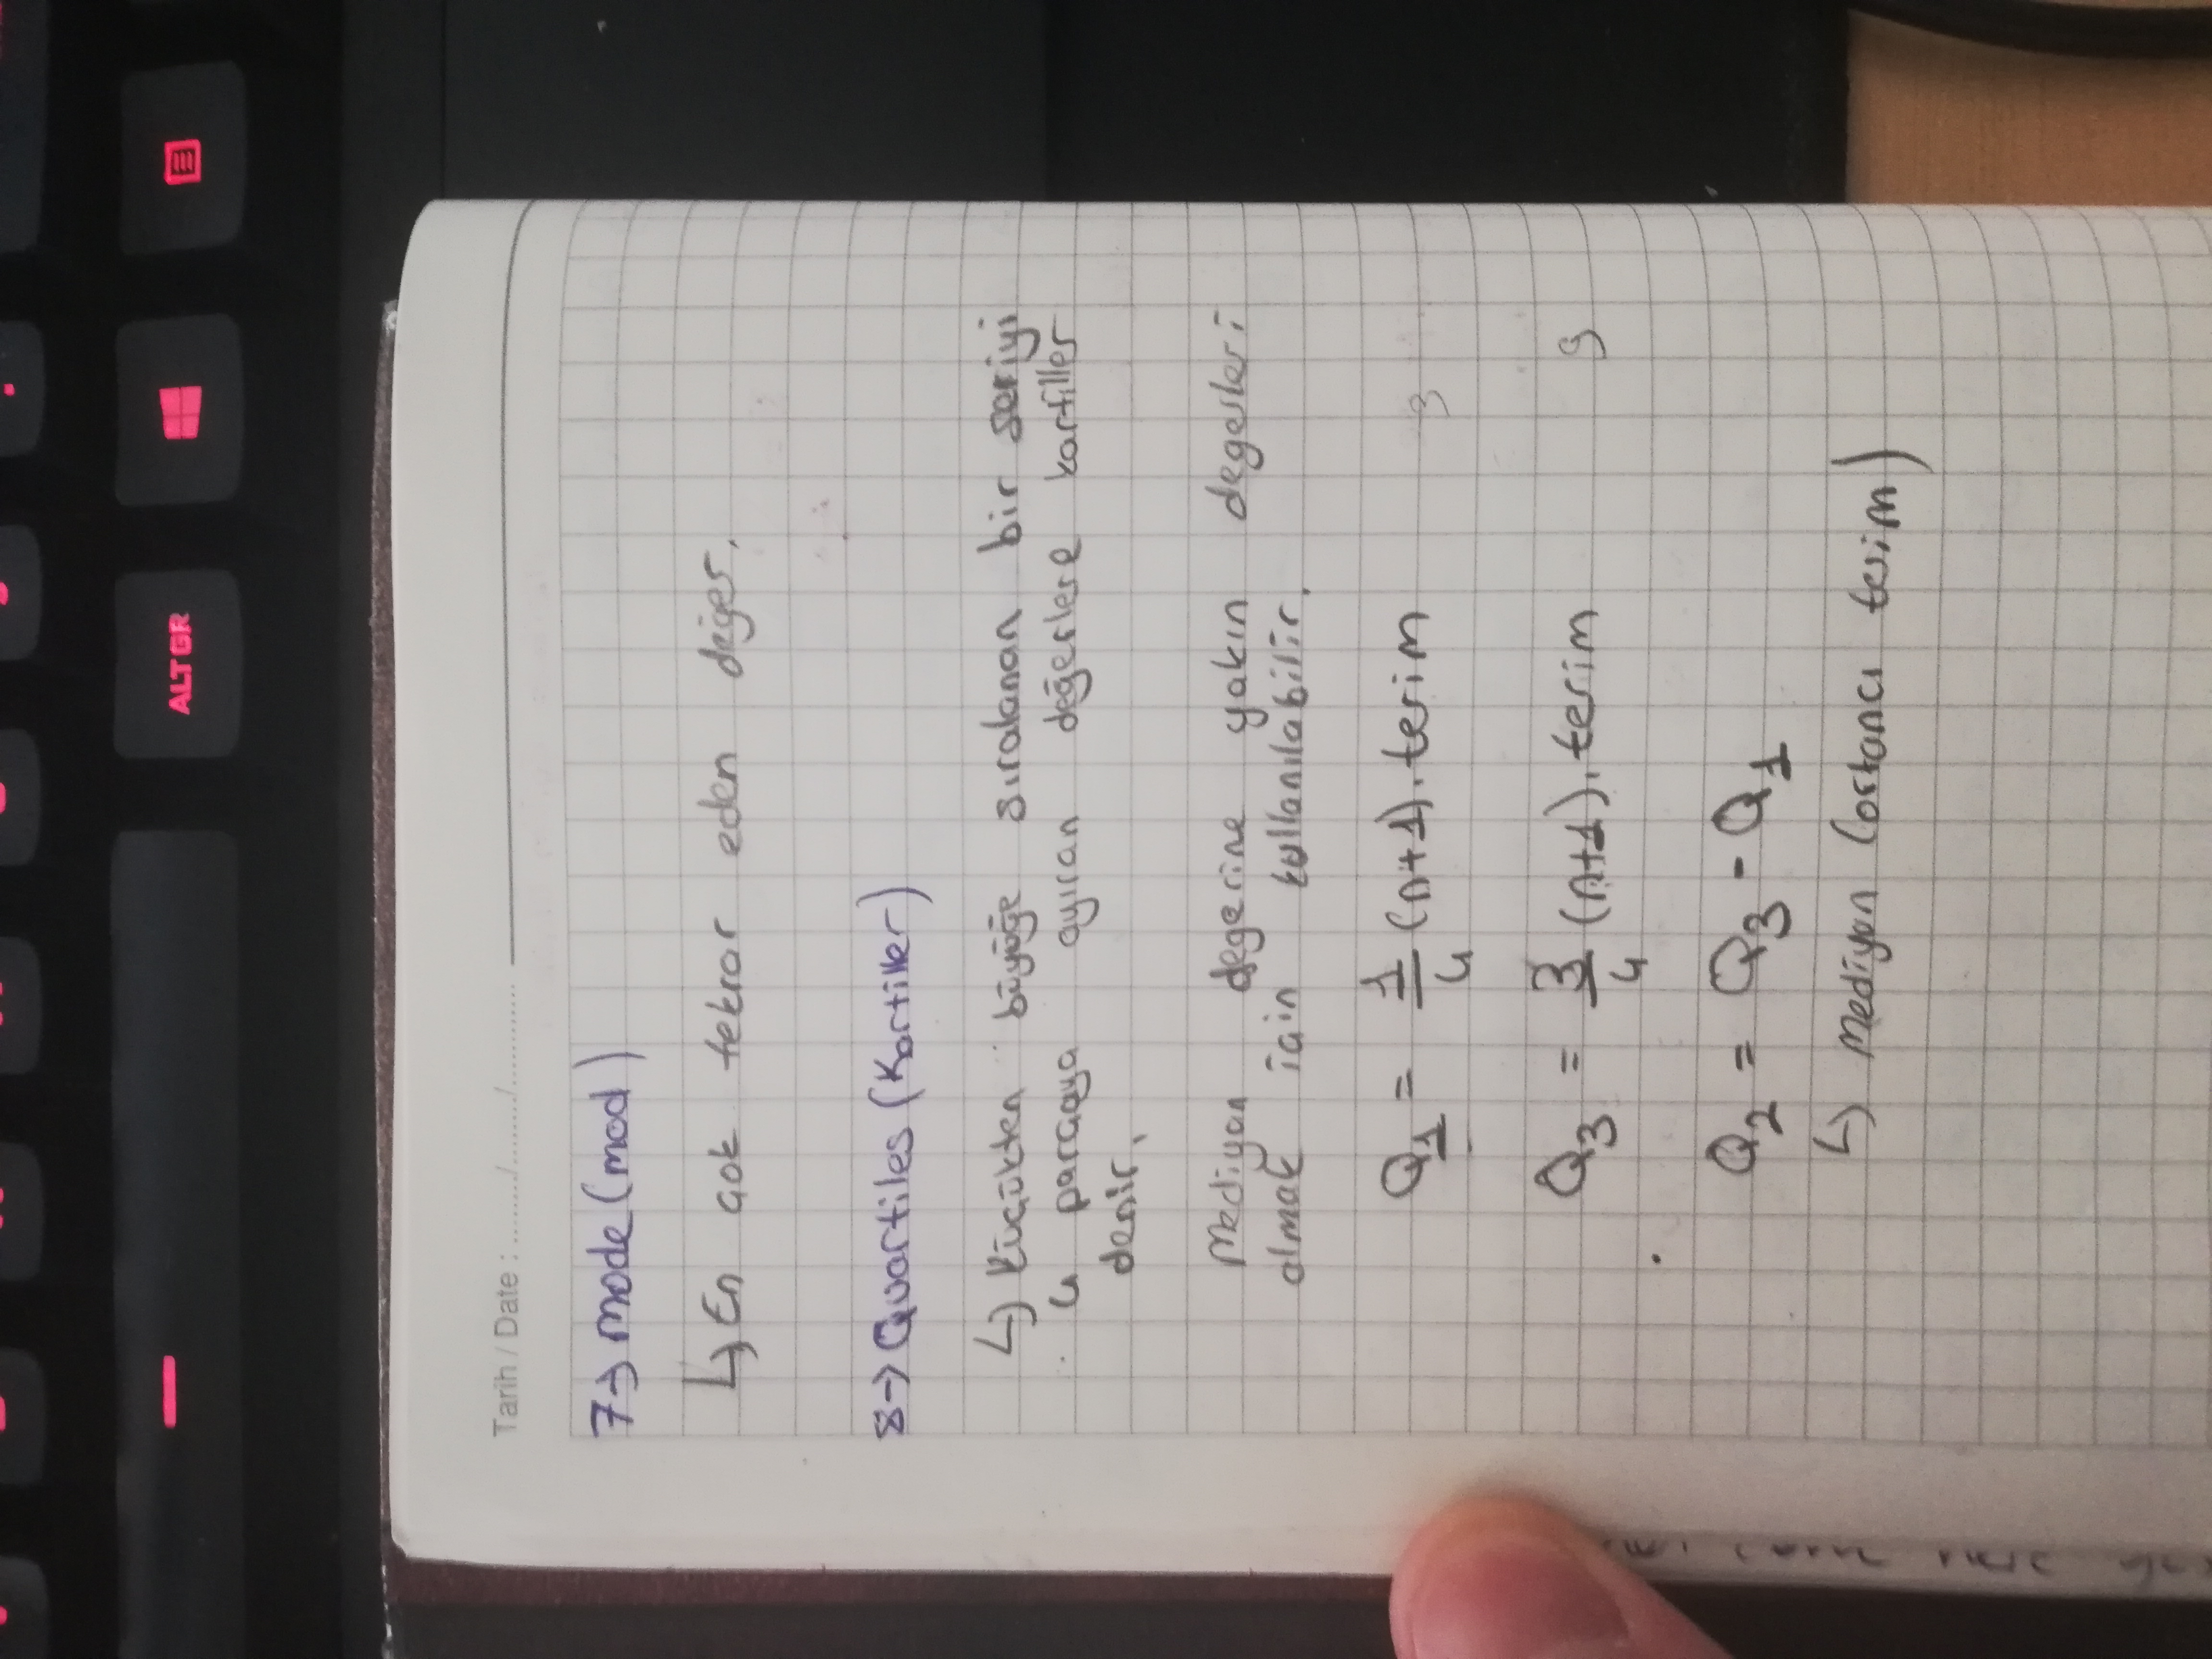 ALTGR
Tarih / Date : ........./........./.........
7→ mode (mod)
↳ En çok tekrar eden değer.
8→ Quartiles (Kartiller)
↳ Küçükten büyüğe sıralanan bir seriyi
4 parçaya ayıran değerlere kartiller
denir.
Mediyan degerine yakın degerleri
almak için kullanılabilir.
Q1 = 1/4 (n+1). terim 3
Q3 = 3/4 (n+1). terim 9
Q2 = Q3 - Q1
↳ Mediyan (ortanca terim)